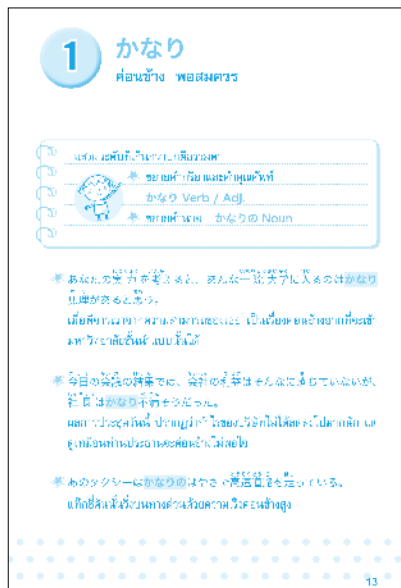 1
かなり
ค่อนข้าง พอสมควร
แสดงระดับที่เกินกว่าปกติธรรมดา
ขยายคำกริยาและคำคุณศัพท์
かなり Verb / Adj.
ขยายคำนาม かなりの Noun
あなたの実力を考えると、あんな一流大学に入るのはかなり
無理があると思う。
เมื่อพิจารณาจากความสามารถของเธอ เป็นเรื่องค่อนข้างยากที่จะเข้า
มหาวิทยาลัยชั้นนำแบบนั้นได้
今日の会議の結果では、会社の利益はそんなに減じていないが、
社長はかなり不満そうだった。
ผลการประชุมวันนี้ ปรากฏว่ากำไรของบริษัทไม่ได้ลดลงไปมากนัก แต่
ดูเหมือนท่านประธานจะค่อนข้างไม่พอใจ
あのタクシーはかなりのはやさで高速道路を走っている。
แท็กซี่คันนั้นวิ่งบนทางด่วนด้วยความเร็วค่อนข้างสูง
13